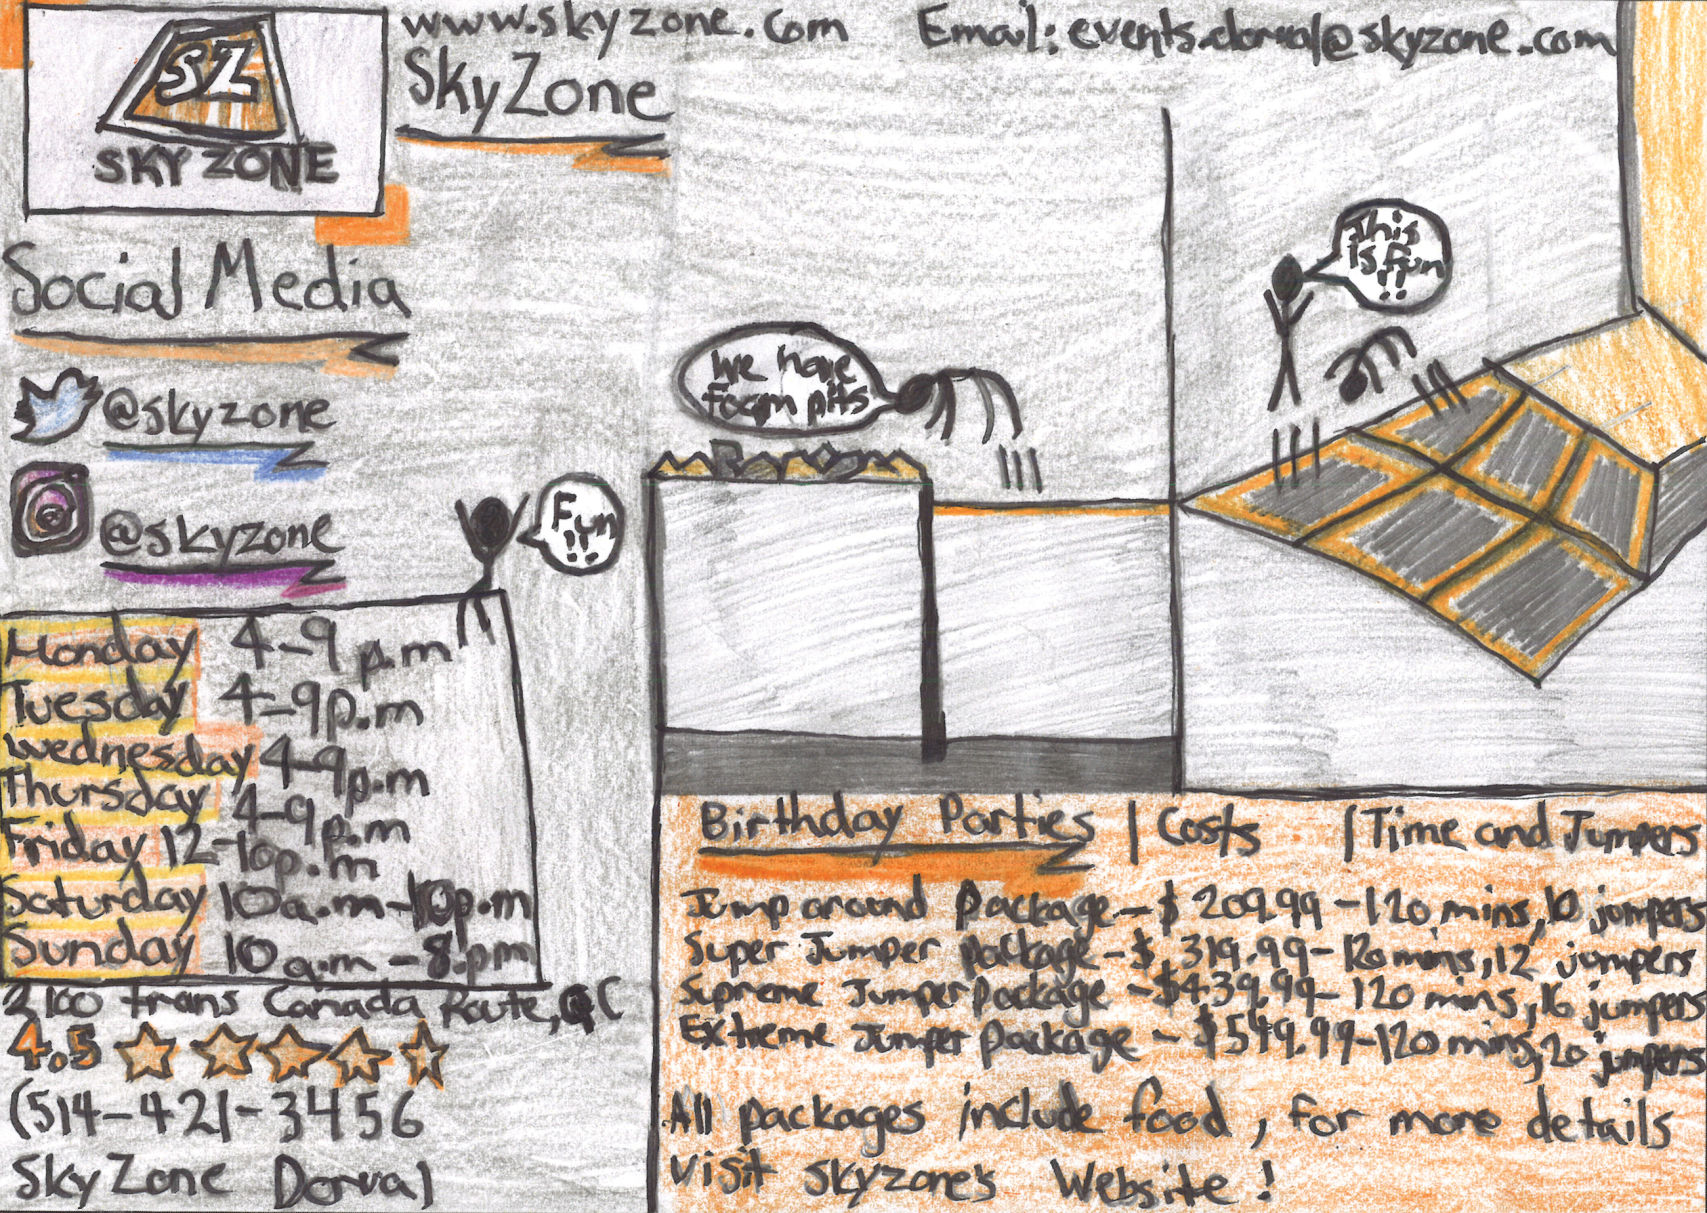 www.skyzone.com
Email: events.dorval@skyzone.com
SZ
SKY ZONE
SkyZone
Social Media
@skyzone
@skyzone
Fun!!
We have
foam pits
This
is fun
!!
Monday 4-9 p.m
Tuesday 4-9p.m
Wednesday 4-9p.m
Thursday 4-9p.m
Friday 12-10p.m
Saturday 10a.m-10p.m
Sunday 10a.m-8.pm
2100 trans Canada Route, QC
4.5
(514-421-3456
SkyZone Dorval
Birthday Parties | Costs | Time and Jumpers
Jump around package-$209.99-120 mins, 10 jumpers
Super Jumper package-$319.99-120 mins, 12 jumpers
Supreme Jumper package-$439.99-120 mins, 16 jumpers
Extreme Jumper package-$549.99-120 mins, 20 jumpers
All packages include food, for more details
visit skyzone's Website!